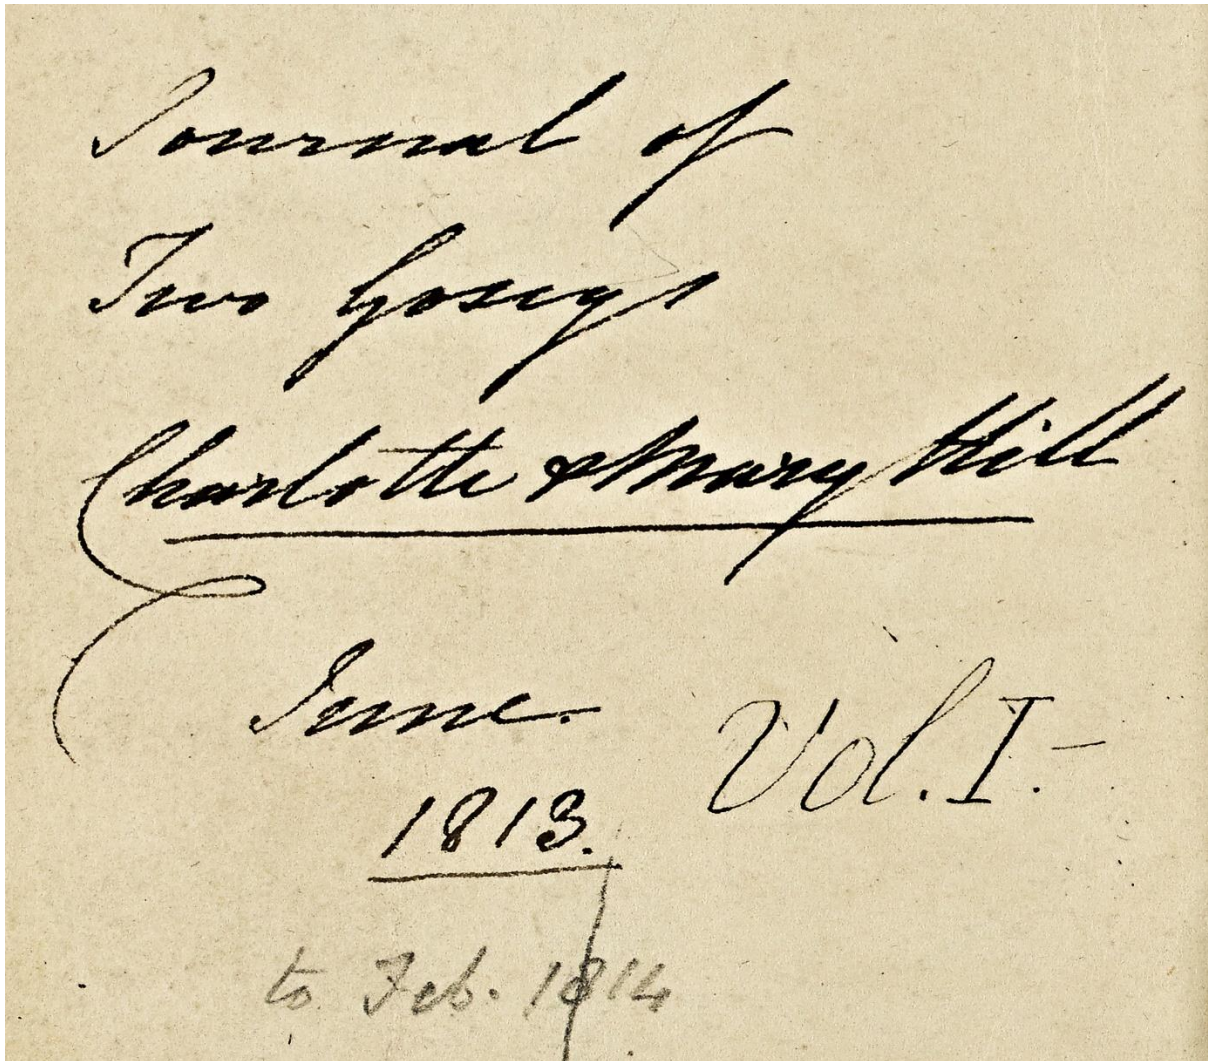 Journal of
Two Gosays
Charlotte & Mary Hill
June.
1813.
Vol. I.-
to Feb. 1814